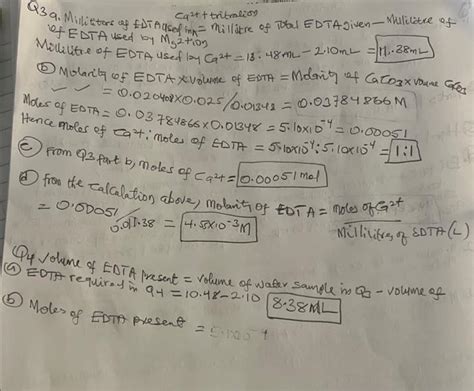 Ca²⁺ titration
Q3 a. Millilitres of EDTA used in = Millilitre of Total EDTA given - Millilitre of
of EDTA used by Mg²⁺ ion
Millilitre of EDTA used by Ca²⁺ = 13.48mL - 2.10mL = 11.38mL
(b) Molarity of EDTA x volume of EDTA = Molarity of CaCO3 x volume CaCO3
= 0.020408 x 0.025 / 0.01348 = 0.03784866 M
Moles of EDTA = 0.03784866 x 0.01348 = 5.10x10⁻⁴ = 0.00051
Hence moles of Ca²⁺ : moles of EDTA = 5.10x10⁻⁴ : 5.10x10⁻⁴ = 1:1
(c) From Q3 part b, moles of Ca²⁺ = 0.00051 mol
(d) from the calculation above, molarity of EDTA = moles of Ca²⁺
Millilitres of EDTA (L)
= 0.00051
0.01138 = 4.5x10⁻³ M
Q4 volume of EDTA present = volume of water sample in Q3 - volume of
(a) EDTA required in q4 = 10.48 - 2.10 8.38ML
(b) Moles of EDTA present =